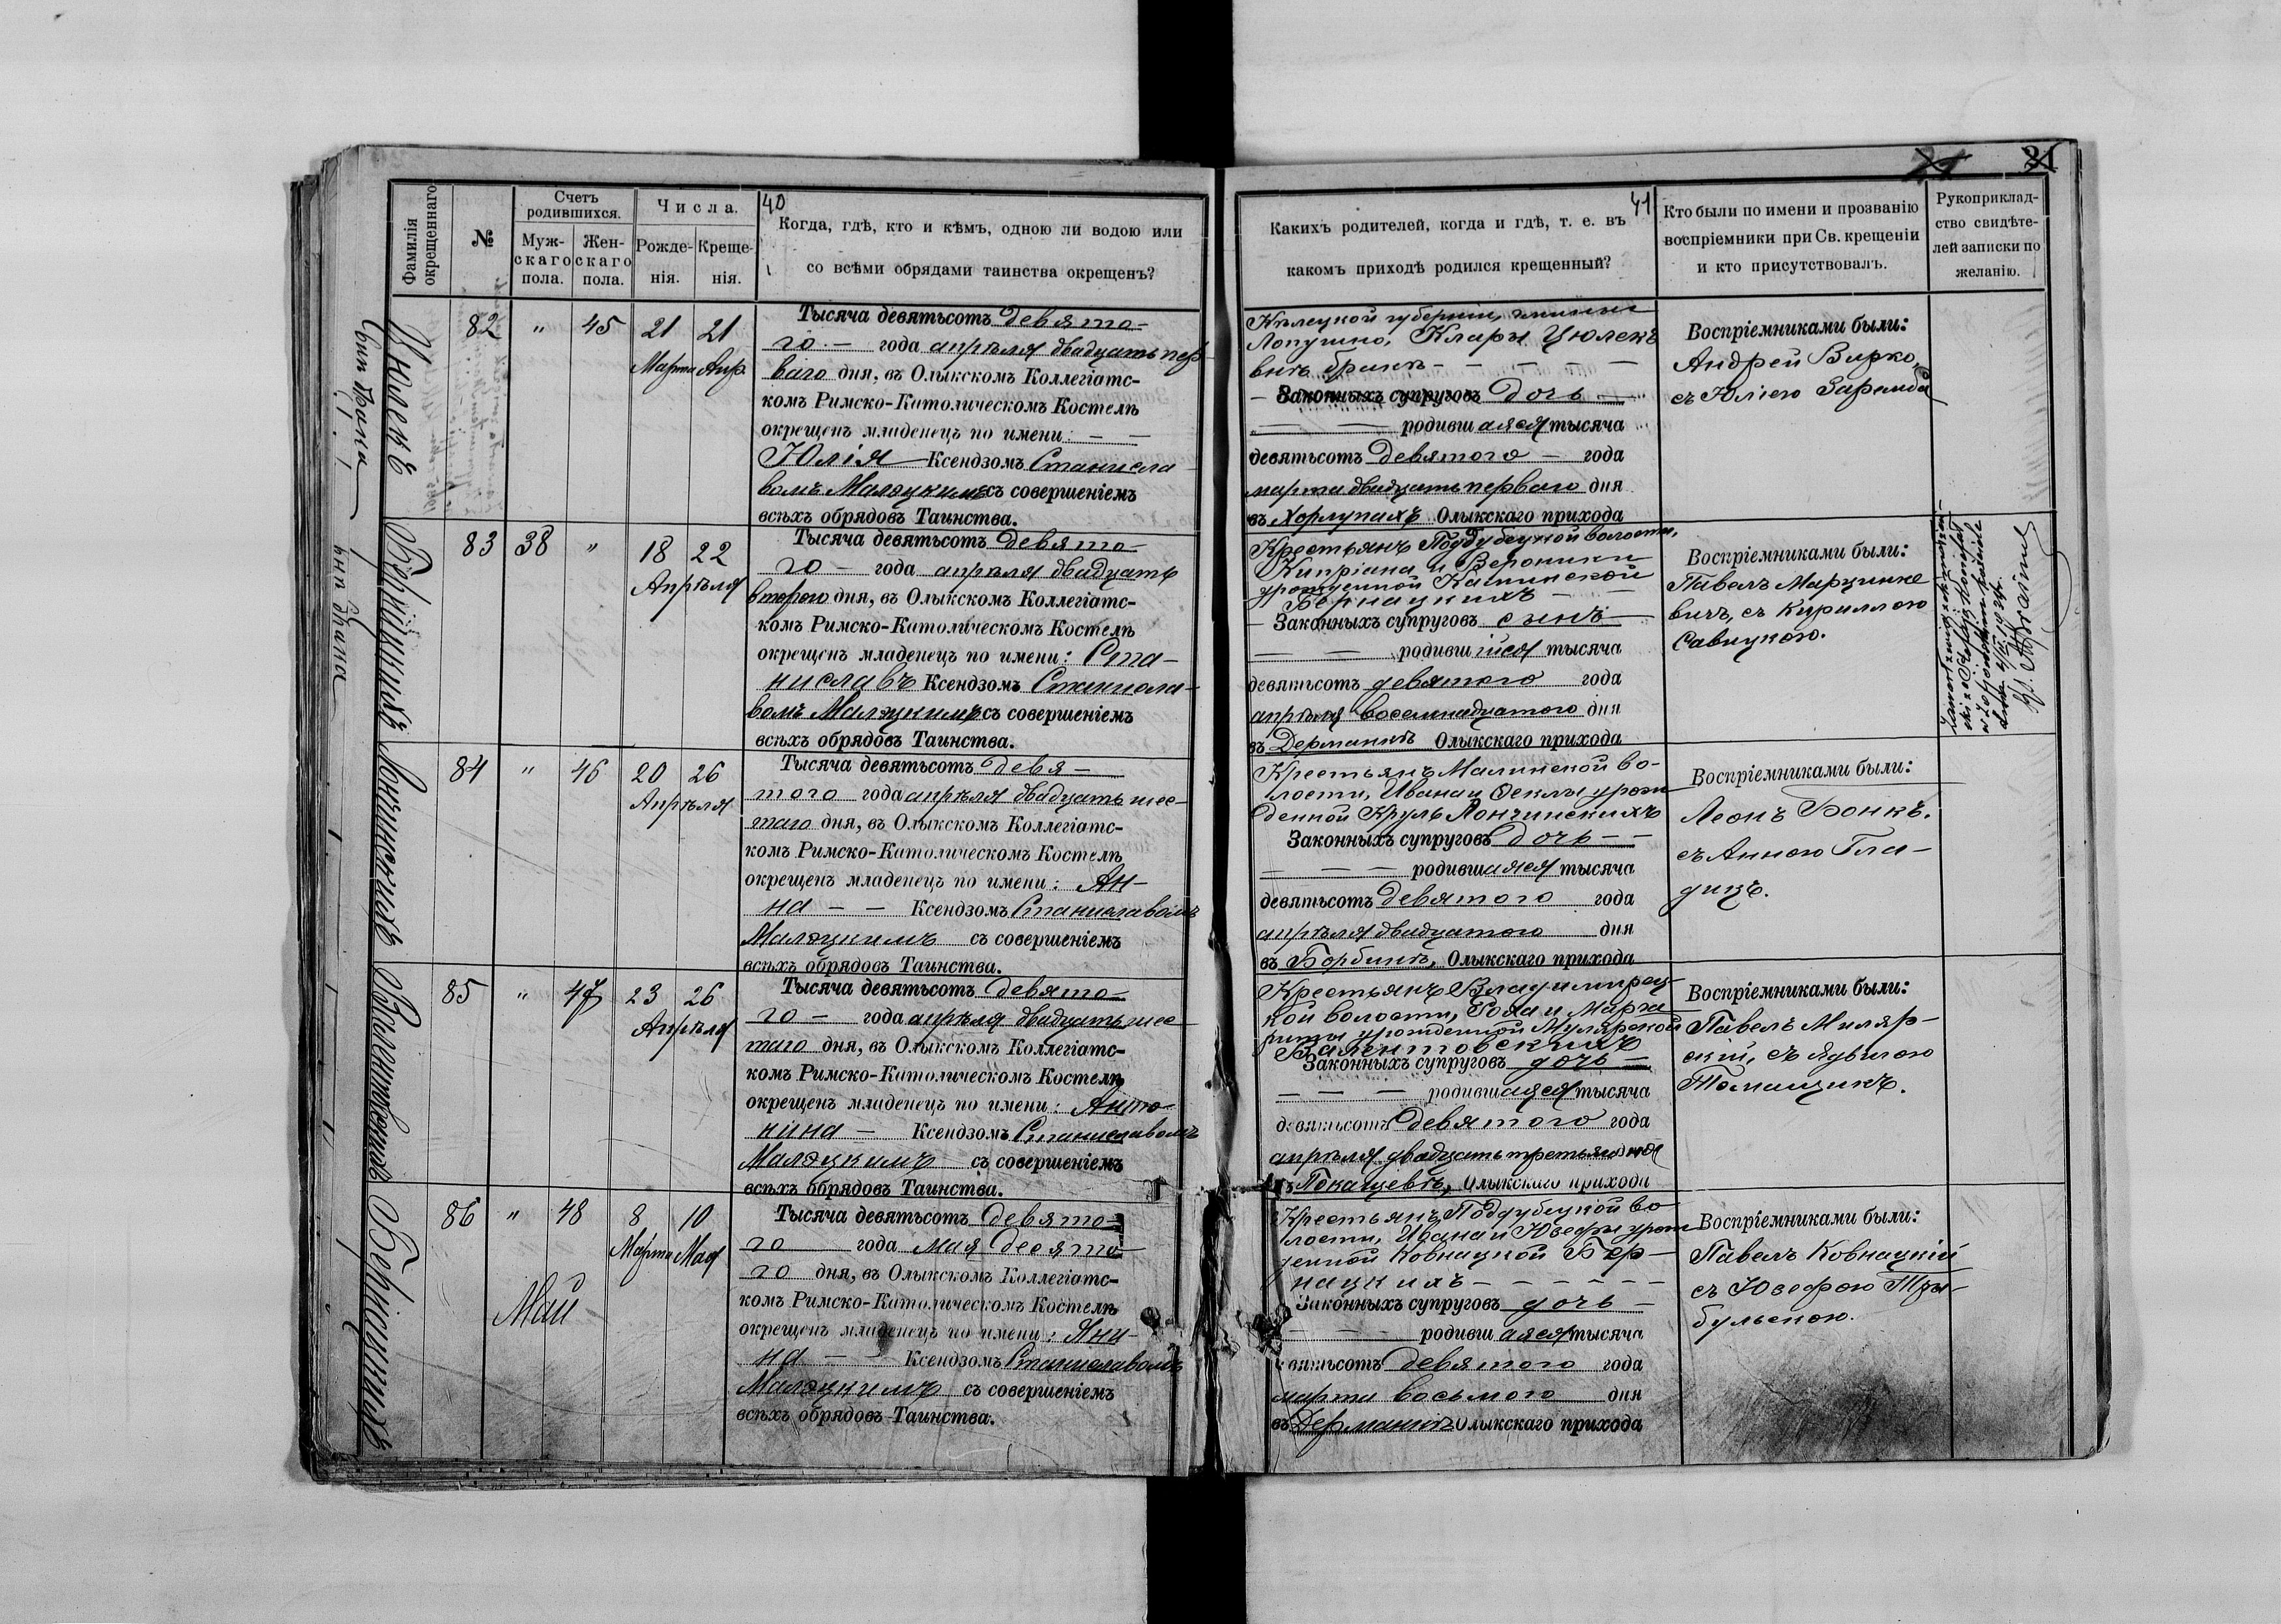 40
41
21
21
Фамилія окрещеннаго
№
Счетъ родившихся.
Муж-скаго пола.
Жен-скаго пола.
Числа.
Рожде-нія.
Креще-нія.
Когда, гдѣ, кто и кѣмъ, одною ли водою или
со всѣми обрядами таинства окрещенъ?
Какихъ родителей, когда и гдѣ, т. е. въ
какомъ приходѣ родился крещенный?
Кто были по имени и прозванію
воспріемники при Св. крещеніи
и кто присутствовалъ.
Рукоприклад-
ство свидѣте-
лей записки по
желанію.
Цюлекъ
82 " 45 21 21
Марта Апр.
Тысяча девятьсотъ девято-
го — года апрѣля двадцать пер-
ваго дня, въ Олыкскомъ Коллегіатс-
комъ Римско-Католическомъ Костелѣ
окрещенъ младенецъ по имени: — —
Юлія Ксендзомъ Станисла-
вомъ Малэцкимъ съ совершеніемъ
всѣхъ обрядовъ Таинства.
Кѣлецкой губерніи, гмины
Лопушно, Клары Цюлекъ
— — — —
— Законныхъ супруговъ дочь —
— — родившаяся тысяча
девятьсотъ девятого — года
марта двадцать перваго дня
въ Хорлупахъ Олыкскаго прихода
Воспріемниками были:
Андрей Вирко,
съ Юліею Заремба
Бернацкихъ
83 38 " 18 22
Апрѣля
Тысяча девятьсотъ девято-
го — года апрѣля двадцать
второго дня, въ Олыкскомъ Коллегіатс-
комъ Римско-Католическомъ Костелѣ
окрещенъ младенецъ по имени: Ста-
ниславъ Ксендзомъ Станисла-
вомъ Малэцкимъ съ совершеніемъ
всѣхъ обрядовъ Таинства.
Крестьянъ Поддубецкой волости,
Кипріана и Вероники
урожденной Калинской
Бернацкихъ — —
— Законныхъ супруговъ сынъ
— — родившійся тысяча
девятьсотъ девятого года
апрѣля восемнадцатого дня
въ Дерманкѣ Олыкскаго прихода
Воспріемниками были:
Павелъ Марцинке
вичъ, съ Кириллою
Савицкою.
Лончинскихъ
84 " 46 20 26
Апрѣля
Тысяча девятьсотъ девя-
того года апрѣля двадцать шес-
таго дня, въ Олыкскомъ Коллегіатс-
комъ Римско-Католическомъ Костелѣ
окрещенъ младенецъ по имени: Ан-
на — — Ксендзомъ Станиславомъ
Малэцкимъ съ совершеніемъ
всѣхъ обрядовъ Таинства.
Крестьянъ Малинской во-
лости, Ивана и Феклы урож
денной Круль Лончинскихъ
Законныхъ супруговъ дочь — —
— — — родившаяся тысяча
девятьсотъ девятого года
апрѣля двадцатого дня
въ Борбинѣ, Олыкскаго прихода
Воспріемниками были:
Леонъ Бонкъ.
съ Анною Гла-
дишъ.
Валентовскихъ
85 " 47 23 26
Апрѣля
Тысяча девятьсотъ девято-
го — года апрѣля двадцать шес-
таго дня, въ Олыкскомъ Коллегіатс-
комъ Римско-Католическомъ Костелѣ
окрещенъ младенецъ по имени: Анто-
нина — Ксендзомъ Станиславомъ
Малэцкимъ съ совершеніемъ
всѣхъ обрядовъ Таинства.
Крестьянъ Владимирец-
кой волости, Роха и Марга
риты урожденной Мулярской
Валентовскихъ
Законныхъ супруговъ дочь —
— — — родившаяся тысяча
девятьсотъ девятого года
апрѣля двадцать третьяго дня
въ Покащевѣ, Олыкскаго прихода
Воспріемниками были:
Павелъ Миляр-
скій, съ Ядвигою
Томащикъ.
Бернацкихъ
86 " 48 8 10
Марта Мая
Май
Тысяча девятьсотъ девято-
го года мая десято-
го дня, въ Олыкскомъ Коллегіатс-
комъ Римско-Католическомъ Костелѣ
окрещенъ младенецъ по имени: Яни-
на — — Ксендзомъ Станиславомъ
Малэцкимъ съ совершеніемъ
всѣхъ обрядовъ Таинства.
Крестьянъ Поддубецкой во
лости, Ивана и Юзефы урож
денной Ковнацкой Бер-
нацкихъ — — — — — —
Законныхъ супруговъ дочь —
— — — родившаяся тысяча
вятьсотъ девятого года
марта восьмого дня
въ Дерманкѣ Олыкскаго прихода
Воспріемниками были:
Павелъ Ковнацкій
съ Юзефою Тры-
бульскою.